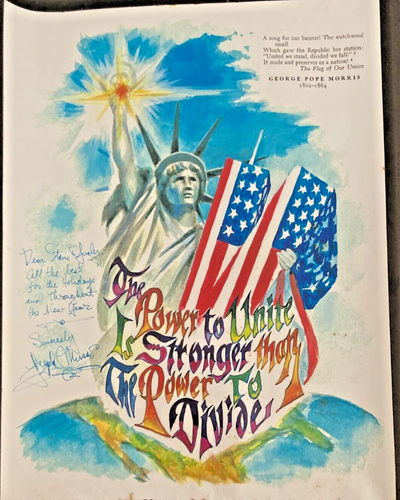 A song for our banner! The watchword
recall
Which gave the Republic her station:
"United we stand, divided we fall!"
It made and preserves us a nation!
The Flag of Our Union
GEORGE POPE MORRIS
1802–1864
The
Power to Unite
Is Stronger than
The Power To
Divide
Dear
All the best
for the Holidays
and throughout
the New Year
Sincerely